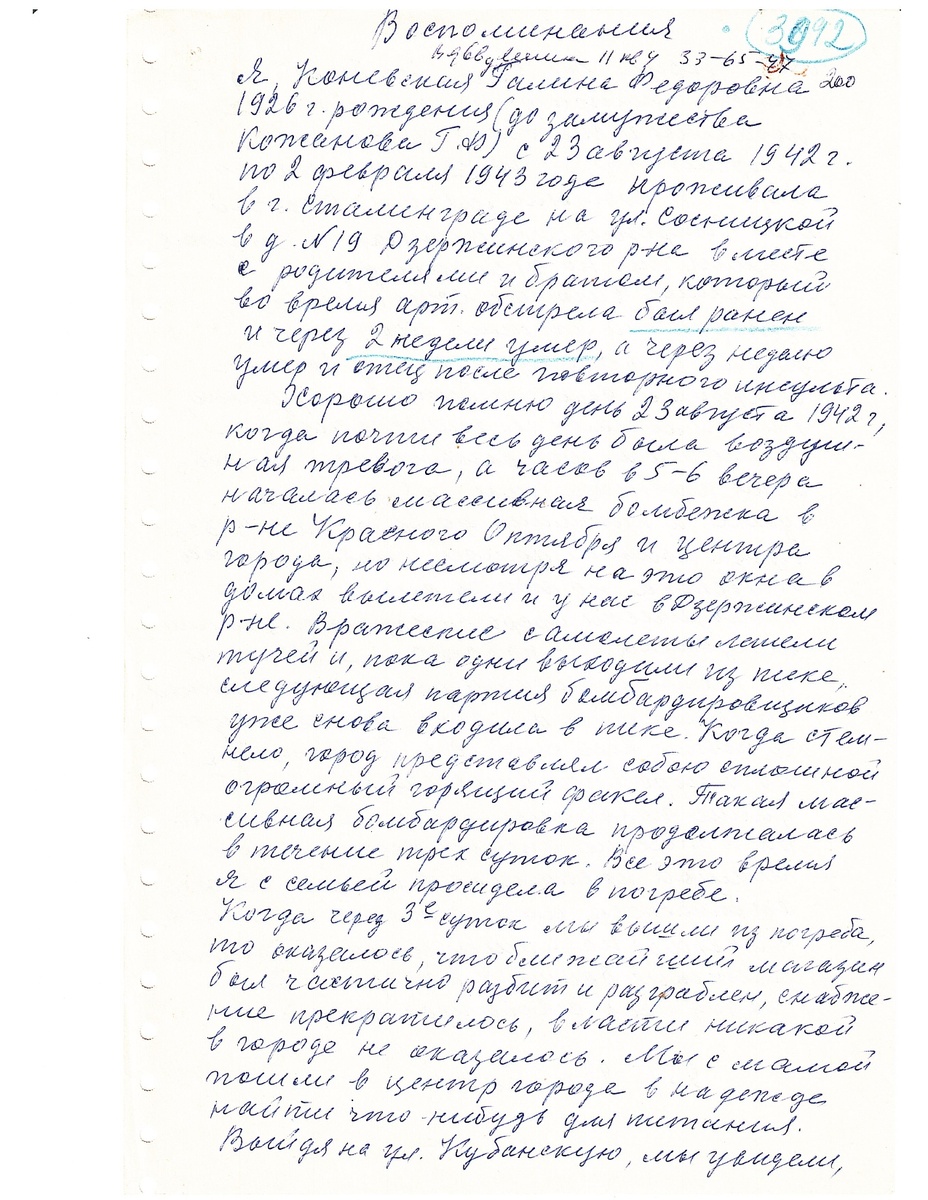 Воспоминания
3992
11 кв 4 33-65-47
Я, Коневская Галина Федоровна 200
1926 г. рождения (до замужества
Кожанова Г.Ф) с 23 августа 1942 г.
по 2 февраля 1943 годе проживала
в г. Сталинграде на ул. Сосницкой
в д. N 19 Дзержинского р-на вместе
с родителями и братом, который
во время арт. обстрела был ранен
и через 2 недели умер, а через неделю
умер и отец после повторного инсульта.
Хорошо помню день 23 августа 1942 г,
когда почти весь день была воздуш-
ная тревога, а часов в 5-6 вечера
началась массивная бомбежка в
р-не Красного Октября и центра
города, но несмотря на это окна в
домах вылетели и у нас в Дзержинском
р-не. Вражеские самолеты летели
тучей и, пока одни выходили из пике,
следующая партия бомбардировщиков
уже снова входила в пике. Когда стем-
нело, город представлял собою сплошной
огромный горящий факел. Такая мас-
сивная бомбардировка продолжалась
в течение трех суток. Все это время
я с семьей просидела в погребе.
Когда через 3е суток мы вышли из погреба,
то оказалось, что ближайший магазин
был частично разбит и разграблен, снабже-
ние прекратилось, власти никакой
в городе не оказалось. Мы с мамой
пошли в центр города в надежде
найти что-нибудь для питания.
Выйдя на ул. Кубанскую, мы увидели,